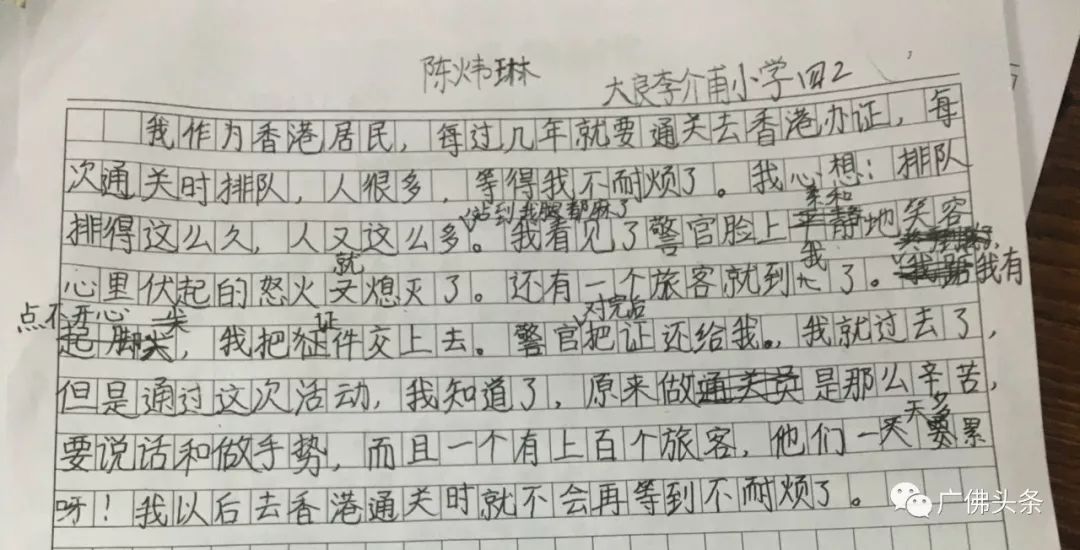 陈炜琳
大良李介甫小学 四2
我作为香港居民，每过几年就要通关去香港办证，每
次通关时排队，人很多，等得我不耐烦了。我心想：排队
站到我脚都麻了 柔和
排得这么久，人又这么多。我看见了警官脸上平静地笑容
就 我
心里伏起的怒火又熄灭了。还有一个旅客就到了。我有
点不开心 证 对完后
起脚尖，我把证件交上去。警官把证还给我。我就过去了，
但是通过这次活动，我知道了，原来做通关员是那么辛苦，
天多
要说话和做手势，而且一个有上百个旅客，他们一天要累
呀！我以后去香港通关时就不会再等到不耐烦了。
广佛头条